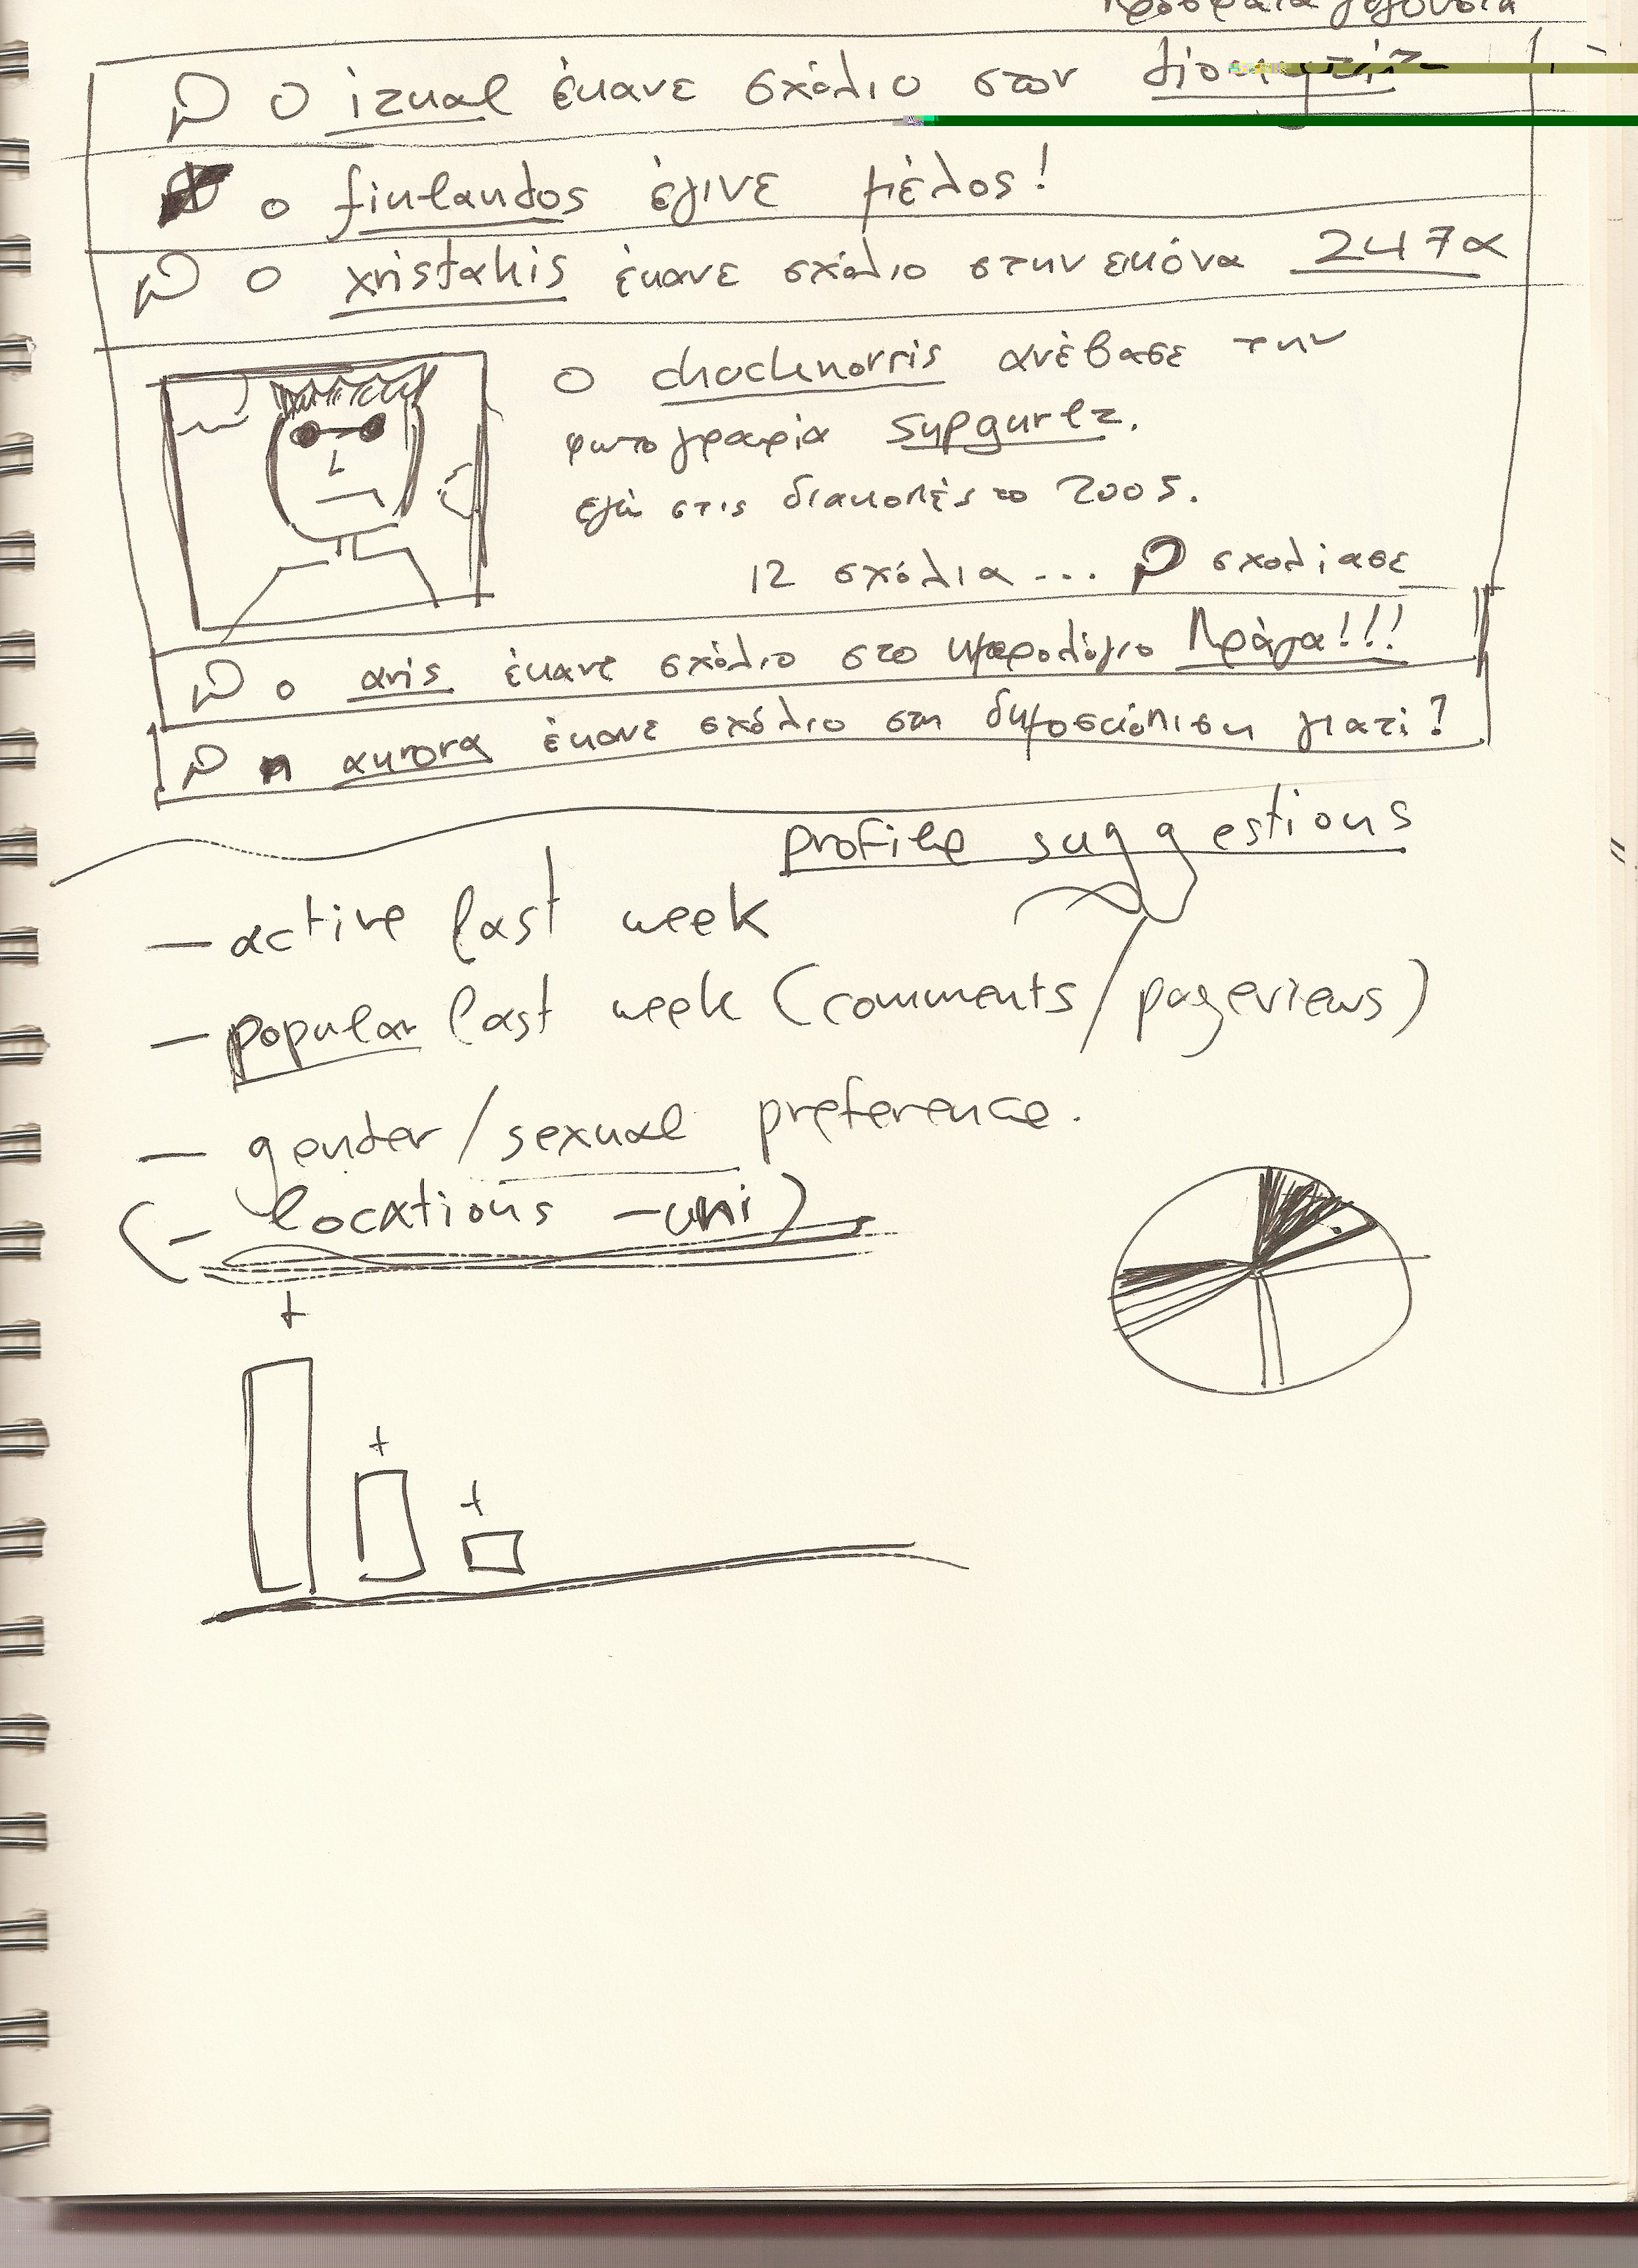 Πρόσφατα γεγονότα
Ο izual έκανε σχόλιο στον
ο finlandos έγινε μέλος!
Ο xristakis έκανε σχόλιο στην εικόνα 247α
Ο chucknorris ανέβασε την
φωτογραφία supgurlz.
εγώ στις διακοπές το 2005.
12 σχόλια... σχολίασε
ο aris έκανε σχόλιο στο ημερολόγιο Πράγα!!!
η aurora έκανε σχόλιο στη δημοσκόπιση γιατί?
profile suggestions
— active last week
— popular last week (comments/pageviews)
— gender/sexual preference.
(- locations -uni)
+
+
+